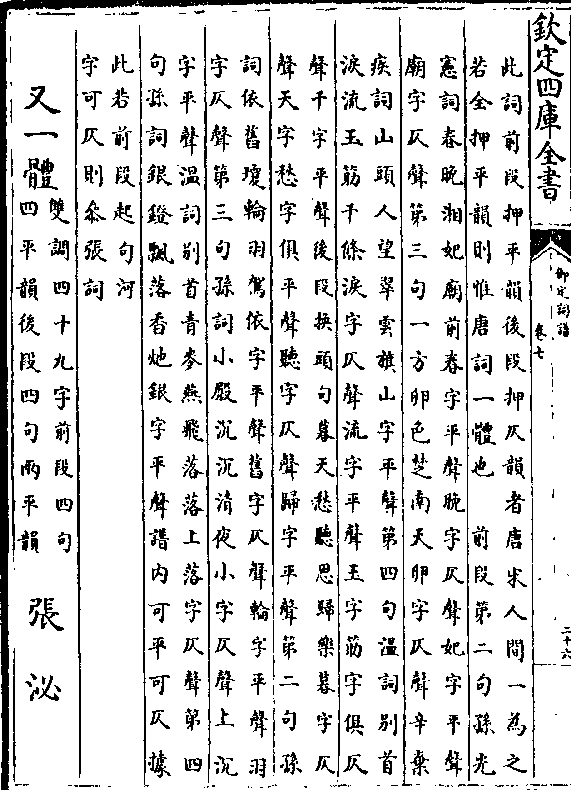 欽定四庫全書
御定詞譜
卷七
二十六
此詞前段押平韻後段押仄韻者唐宋人間一為之
若全押平韻則惟唐詞一體也　前段第二句孫光
憲詞春晚湘妃廟前春字平聲晚字仄聲妃字平聲
廟字仄聲第三句一方卵色楚南天卵字仄聲辛棄
疾詞山頭人望翠雲旗山字平聲第四句溫詞別首
淚流玉筋千條淚字仄聲流字平聲玉字筋字俱仄
聲千字平聲後段換頭句暮天愁聽思歸樂暮字仄
聲天字愁字俱平聲聽字仄聲歸字平聲第二句孫
詞依舊瓊輪羽駕依字平聲舊字仄聲輪字平聲羽
字仄聲第三句孫詞小殿沉沉清夜小字仄聲上沉
字平聲溫詞別首青麥燕飛落落上落字仄聲第四
句孫詞銀鐙飄落香灺銀字平聲譜内可平可仄據
此若前段起句河
字可仄則叅張詞
又一體
雙調四十九字前段四句
四平韻後段四句兩平韻
張泌